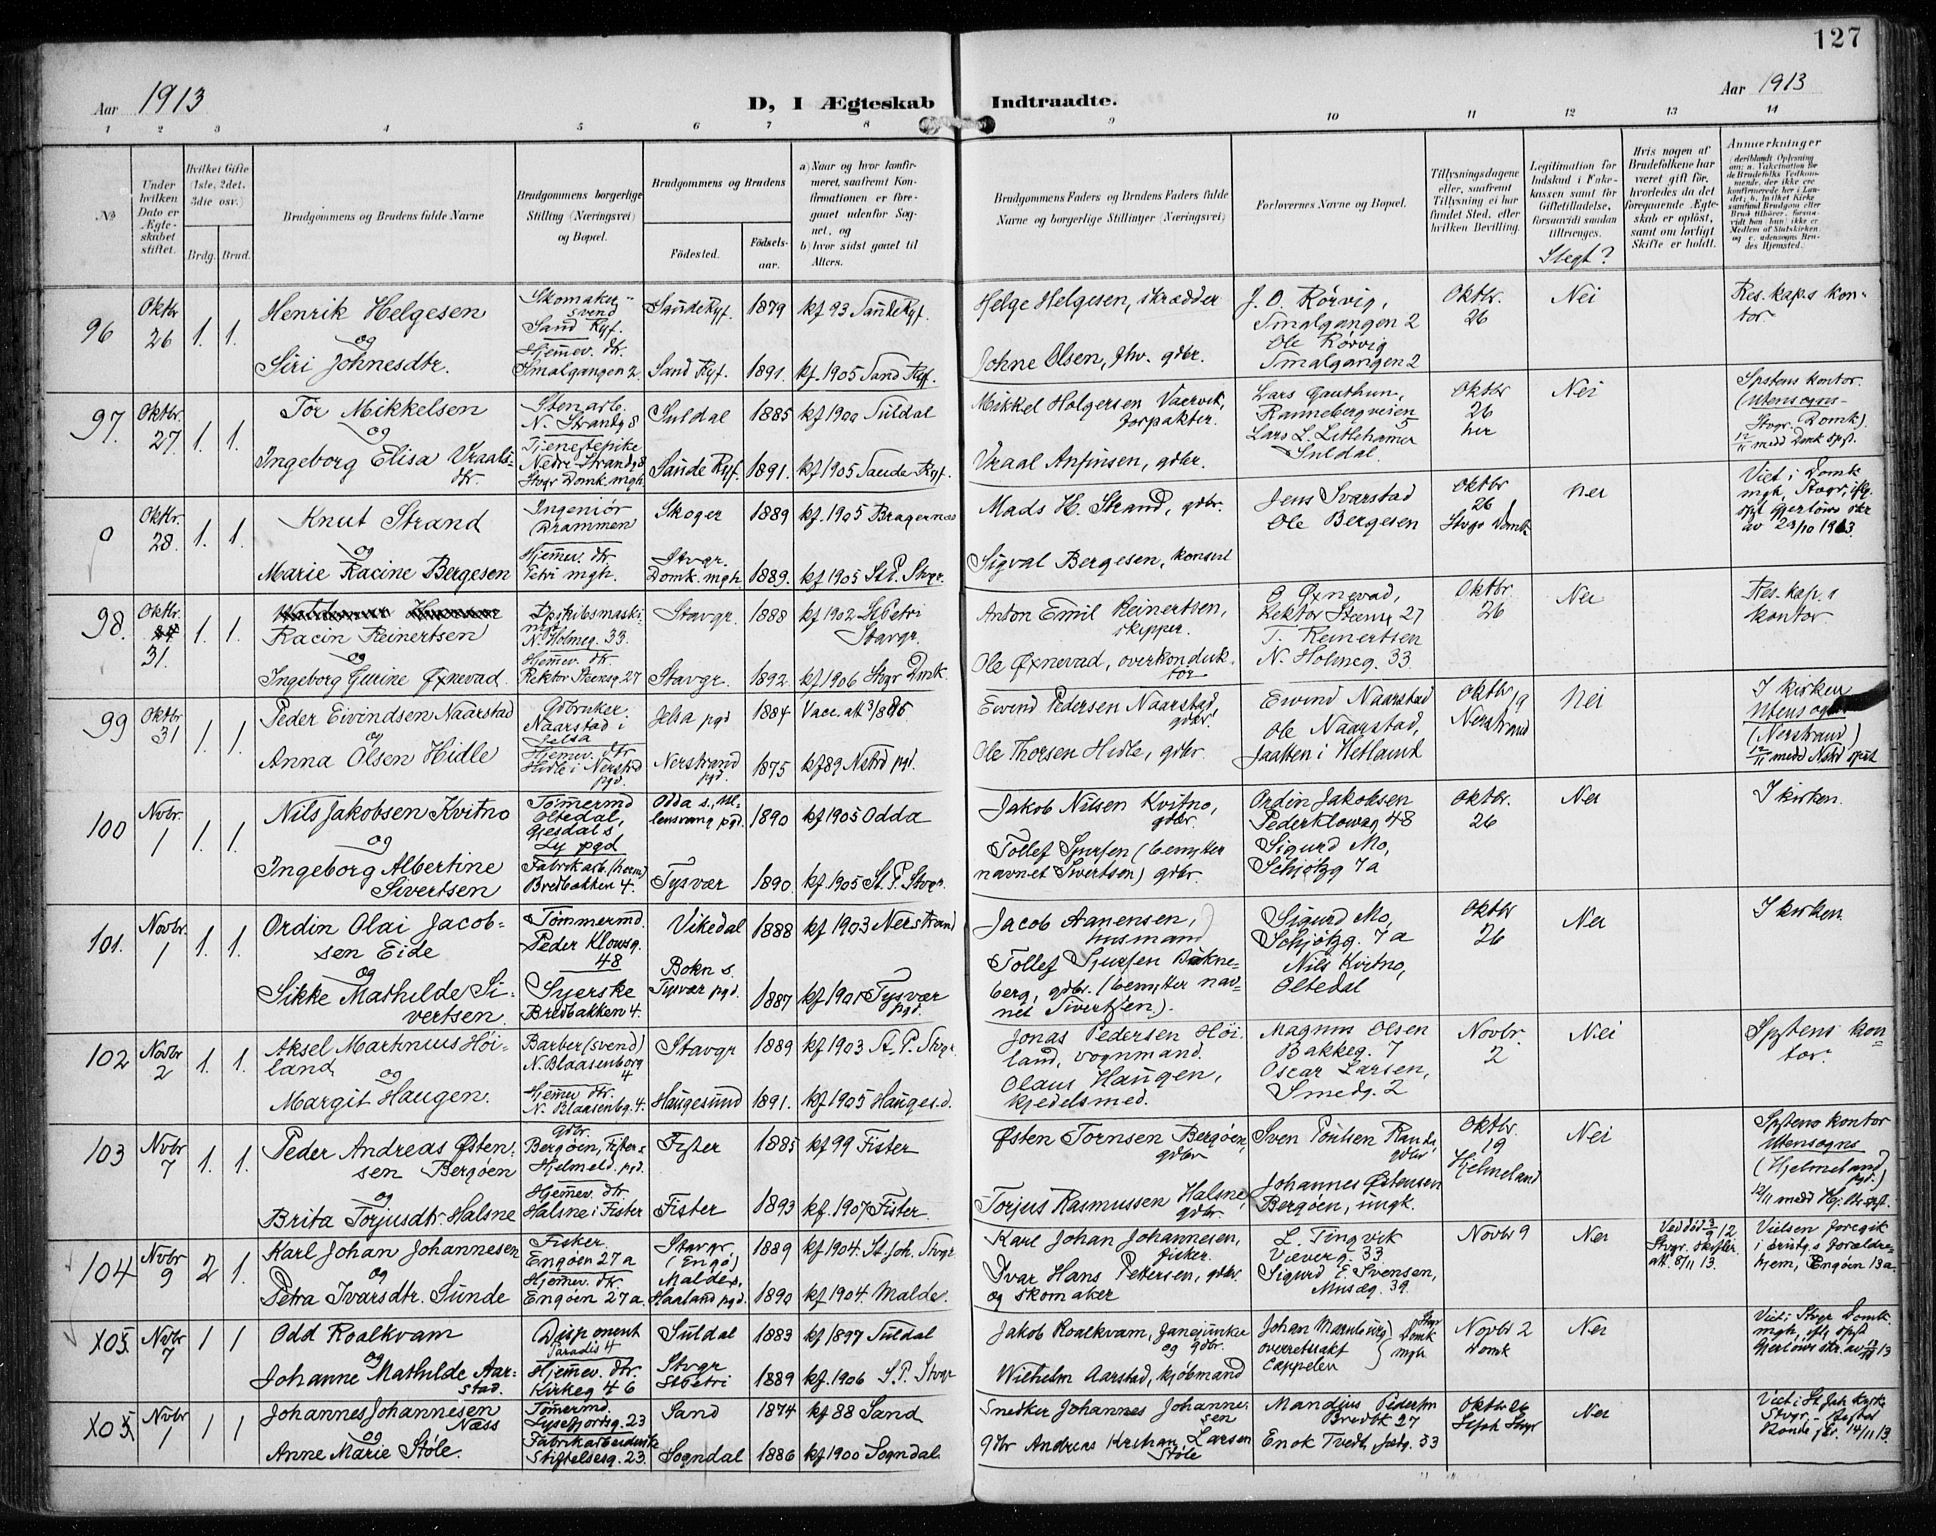 127
Aar 1913
D, I Ægteskab Indtraadte.
Aar 1913
1 2 3 4 5 6 7 8 9 10 11 12 13 14
No
Under hvilken Dato er Ægteskabet stiftet.
Hvilket Gifte (1ste, 2det, 3die osv.)
Brdg. Brud.
Brudgommens og Brudens fulde Navne
Brudgommens borgerlige Stilling (Næringsvei) og Bopæl.
Brudgommens og Brudens
Fødested.
Fødselsaar.
a) Naar og hvor konfirmeret, saafremt Konfirmationen er foregaaet udenfor Sognet, og
b) hvor sidst gaaet til Alters.
Brudgommens Faders og Brudens Faders fulde Navne og borgerlige Stillinger (Næringsvei)
Forlovernes Navne og Bopæl.
Tillysningsdagene eller, saafremt Tillysning ei har fundet Sted, efter hvilken Bevilling.
Legitimation for Indskud i Enkekassen samt for Giftetilladelse, forsaavidt saadan tiltrænges.
Slegt?
Hvis nogen af Brudefolkene har været gift før, hvorledes da det foregaaende Ægteskab er opløst, samt om lovligt Skifte er holdt.
Anmærkninger
96 Oktbr 26 1. 1. Henrik Helgesen
og
Siri Johnesdtr.
Skomakersvend
Sand Ryf.
Hjemev. dtr.
Smalgangen 2.
Saude Ryf. 1879 kf 93 Saude Ryf.
Sand Ryf. 1891. kf. 1905 Sand Ryf.
Helge Helgesen, skrædder
Johne Olsen, Jhv. gdbr.
J. O. Rørvig,
Smalgangen 2
Ole Rørvig
Smalgangen 2
Oktbr. 26
Nei
Res. kap.s kontor
97. Oktbr. 27. 1. 1. Tor Mikkelsen
og
Ingeborg Elisa Vraalsdtr.
Stenarb.
N. Strandg 8
Tjenestepike
Nedre Strandg 8
Stvgr Domk. mgh.
Suldal 1885 kf 1900 Suldal
Saude Ryf. 1891. kf. 1905 Saude Ryf.
Mikkel Holgersen Vaarvik, forpakter.
Vraal Anfinsen, gdbr.
Lars Gauthun,
Rannebergveien 5
Lars L. Litlehamar
Suldal.
Oktbr 26 her
Nei
Spstens kontor.
(Utensogns-
Stvgr. Domk).
12/11 medd Domk spst.
0 Oktbr. 28. 1. 1. Knut Strand
og
Marie Racine Bergesen
Ingeniør
Drammen
Hjemev. dtr
Petri mgh.
Skoger 1889 kf. 1905 Bragernæs
Stvgr. Domk. mgh 1889. kf 1905 St. P. Stvgr.
Mads H. Strand, gdbr.
Sigval Bergesen, konsul
Jens Svarstad
Ole Bergesen
Oktbr 26
Stvgr Domk
Nei
Viet i Domk mgh, Stvgr, iflg. spst Gjerløws skr av 29/10 1913
98. Oktbr. 31. 1. 1.
Racin Reinertsen
og
Ingeborg Gurine Øxnevad.
N. Holmeg. 33.
Hjemev. dtr.
Rektor Steensg. 27
Stavgr. 1888 kf 1902 St Petri Stavgr.
Stavgr. 1892. kf 1906 Stvgr Domk.
Anton Emil Reinertsen, skipper.
Ole Øxnevad, overkonduktør
O Øxnevad,
Rektor Steensg 27
T. Reinertsen
N. Holmeg. 33.
Oktbr. 26
Nei
Res. kap.s kontor
99 Oktbr 31 1. 1. Peder Eivindsen Naarstad
og
Anna Olsen Hidle
Gdbruker
Naarstad i Jelsa
Hjemev. dtr
Hidle i Nerstrd pgd.
Jelsa pgd 1884 Vacc. att 3/8 85
Nerstrand pgd. 1875 kf 89 Nstrd pgd.
Eivind Pedersen Naarstad, gdbr.
Ole Thorsen Hidle, gdbr.
Eivind Naarstad
Ole Naarstad,
Jaatten i Hetland
Oktbr 19
Nerstrand
Nei
I kirken
Utensogns
(Nerstrand)
12/11 medd Nstrd spst
100 Novbr. 1 1. 1. Nils Jakobsen Kvitno
og
Ingeborg Albertine Sivertsen
Tømermd
Oltedal,
Gjesdal s
Ly pgd
Fabrikarb. (herm)
Bredbakken 4.
Odda s., Ullensvang pgd. 1890 kf 1905 Odda
Tysvær 1890. kf. 1905 St. P. Stvgr.
Jakob Nilsen Kvitno, gdbr.
Tollef Sjursen (benytter navnet Sivertsen) gdbr.
Ordin Jakobsen
Peder Klowsg 48
Sigurd Mo,
Schjøtzg 7a
Oktbr. 26
Nei
I kirken.
101. Novbr. 1 1. 1. Ordin Olai Jacobsen Eide
og
Sikke Mathilde Sivertsen.
Tømmermd.
Peder Klowsg. 48
Syerske
Bredbakken 4.
Vikedal 1888 kf 1903 Nerstrand
Bokn s. Tysvær pgd. 1887 kf 1901 Tysvær pgd.
Jacob Aanensen, husmand
Tollef Sjursen Bokneberg, gdbr. (benytter navnet Sivertsen).
Sigurd Mo,
Schjøtzg. 7 a
Nils Kvitno,
Oltedal
Oktbr 26
Nei
I kirken
102 Novbr 2 1. 1. Aksel Martinius Høiland
og
Margit Haugen.
Barber (svend)
N. Blaasenborg 4
Hjemev dtr.
N. Blaasenbg. 4.
Stavgr 1889 kf 1903 St. P. Stvgr.
Haugesund 1891. kf 1905 Hauges.d.
Jonas Pedersen Høiland, vognmand.
Olaus Haugen, kjedelsmed.
Magnus Olsen
Bakkeg. 7
Oscar Larsen,
Smedg. 2
Novbr. 2
Nei
Spstens kontor.
103 Novbr 7 1. 1. Peder Andreas Østensen Bergøen
og
Brita Torjusdtr. Halsne
gdbr.
Bergøen, Fister s
Hjelmeld. pgd.
Hjemev. dtr.
Halsne i Fister
Fister 1885 kf 99 Fister
Fister 1893 kf. 1907 Fister.
Østen Tornsen Bergøen, gdbr
Torjus Rasmussen Halsne, gdbr.
Sven Poulsen Rande, gdbr
Johannes Østensen
Bergøen, ungk.
Oktbr. 19
Hjelmeland
Nei
Spstens kontor
Utensogns
(Hjelmeland pgd.)
12/11 medd Hj.lds spst.
104 Novbr 9 2 1. Karl Johan Johannesen
og
Petra Ivarsdtr. Sunde
Fisker.
Engøen 27 a
Hjemev. dtr
Engøen 27 a.
Stavgr (Engø) 1889 kf 1904. St. Joh. Stvgr.
Malde s, Haaland pgd. 1890 kf 1904. Malde.
Karl Johan Johannesen, fisker.
Ivar Hans Pettersen, gdbr. og skomaker
L. Tingvik
Væverg. 33
Sigurd E. Svensen,
Musæg. 39.
Novbr 9
Nei
Ved død 3/9 12
Stvgr. skifter. att. 8/11 13.
Vielsen foregik i brudg.s forældrehjem, Engøen 13 a.
X05 Novbr 7 1 1 Odd Roalkvam
og
Johanne Mathilde Aarstad.
Disponent
Paradis 4
Hjemev. dtr.
Kirkeg 46
Suldal 1883 kf 1897 Suldal
Stvgr St Petri 1889 kf. 1906 S. P. Stvgr
Jakob Roalkvam, og gdbr.
Wilhelm Aarstad, kjøbmand
Johan
overretssakf
Cappelen
Stvgr Domk mgh
Novbr 2 Domk
Nei
Viet i Stvgr Domk mgh, iflg spst Gjerløws skr. av 13
X05 Novbr 1 1 1 Johannes Johannesen Næss
og
Anne Marie Støle.
Tømermd.
Lysefjordsg. 23
Fabrikarbeiderske
Stiftelsesg. 23.
Sand 1874 kf 88 Sand
Sogndal 1886 kf 1900 Sogndal.
Snedker Johannes Johannesen
gdbr Andreas Kristian Larsen Støle
Mandius Pedersen
Bredbk 27
Enok Tvedt, 53
Oktbr 26
Nei
Viet i St. Joh kirke Stvgr, Pastor Bonde 14/11 13.